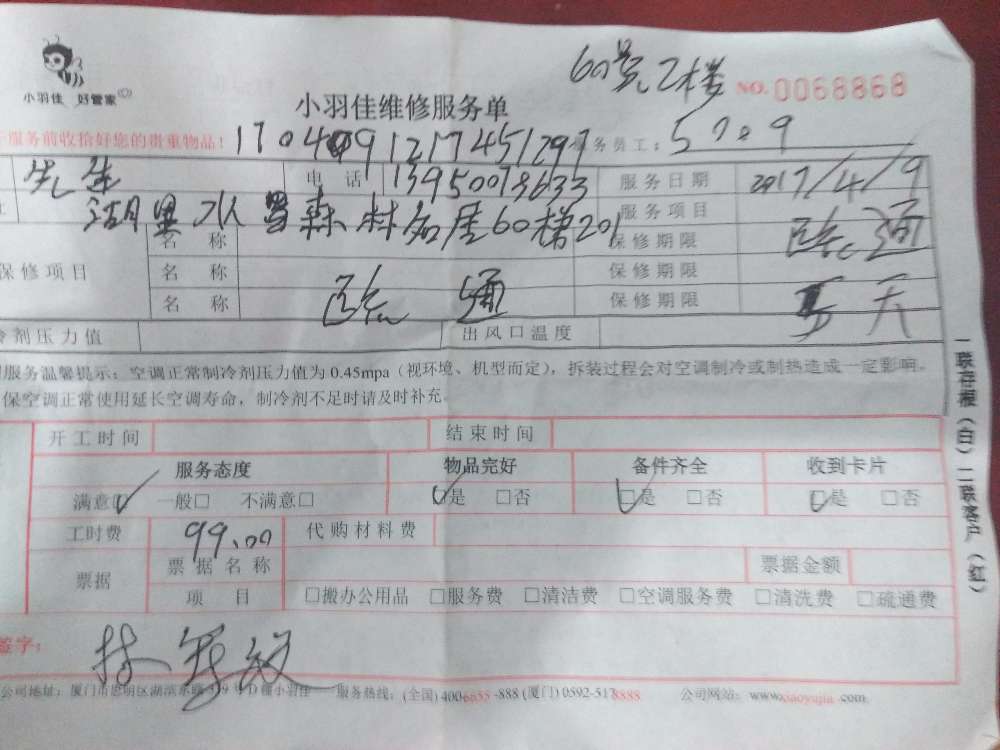 60号2楼
小羽佳 好管家
NO. 0068868
小羽佳维修服务单
服务前收拾好您的贵重物品! 务员工: 5709
先生 电话 13950073633 服务日期 2017/4/9
森林名居60梯201 服务项目
名称 保修期限 疏通
保修项目 名称 保修期限
名称 疏通 保修期限 天
剂压力值 出风口温度
服务温馨提示: 空调正常制冷剂压力值为 0.45mpa (视环境、机型而定), 拆装过程会对空调制冷或制热造成一定影响。
保空调正常使用延长空调寿命, 制冷剂不足时请及时补充.
一联存根(白) 二联客户(红)
开工时间 结束时间
服务态度 物品完好 备件齐全 收到卡片
满意☑ 一般□ 不满意□ ☑是 □否 ☑是 □否 ☑是 □否
工时费 99.00 代购材料费
票据 票据名称 票据金额
项目 □搬办公用品 □服务费 □清洁费 □空调服务费 □清洗费 □疏通费
签字:
公司地址: 厦门市思明区湖滨东路 服务热线: (全国) 4006655-888 (厦门) 0592-5178888 公司网站: www.xiaoyujia.com